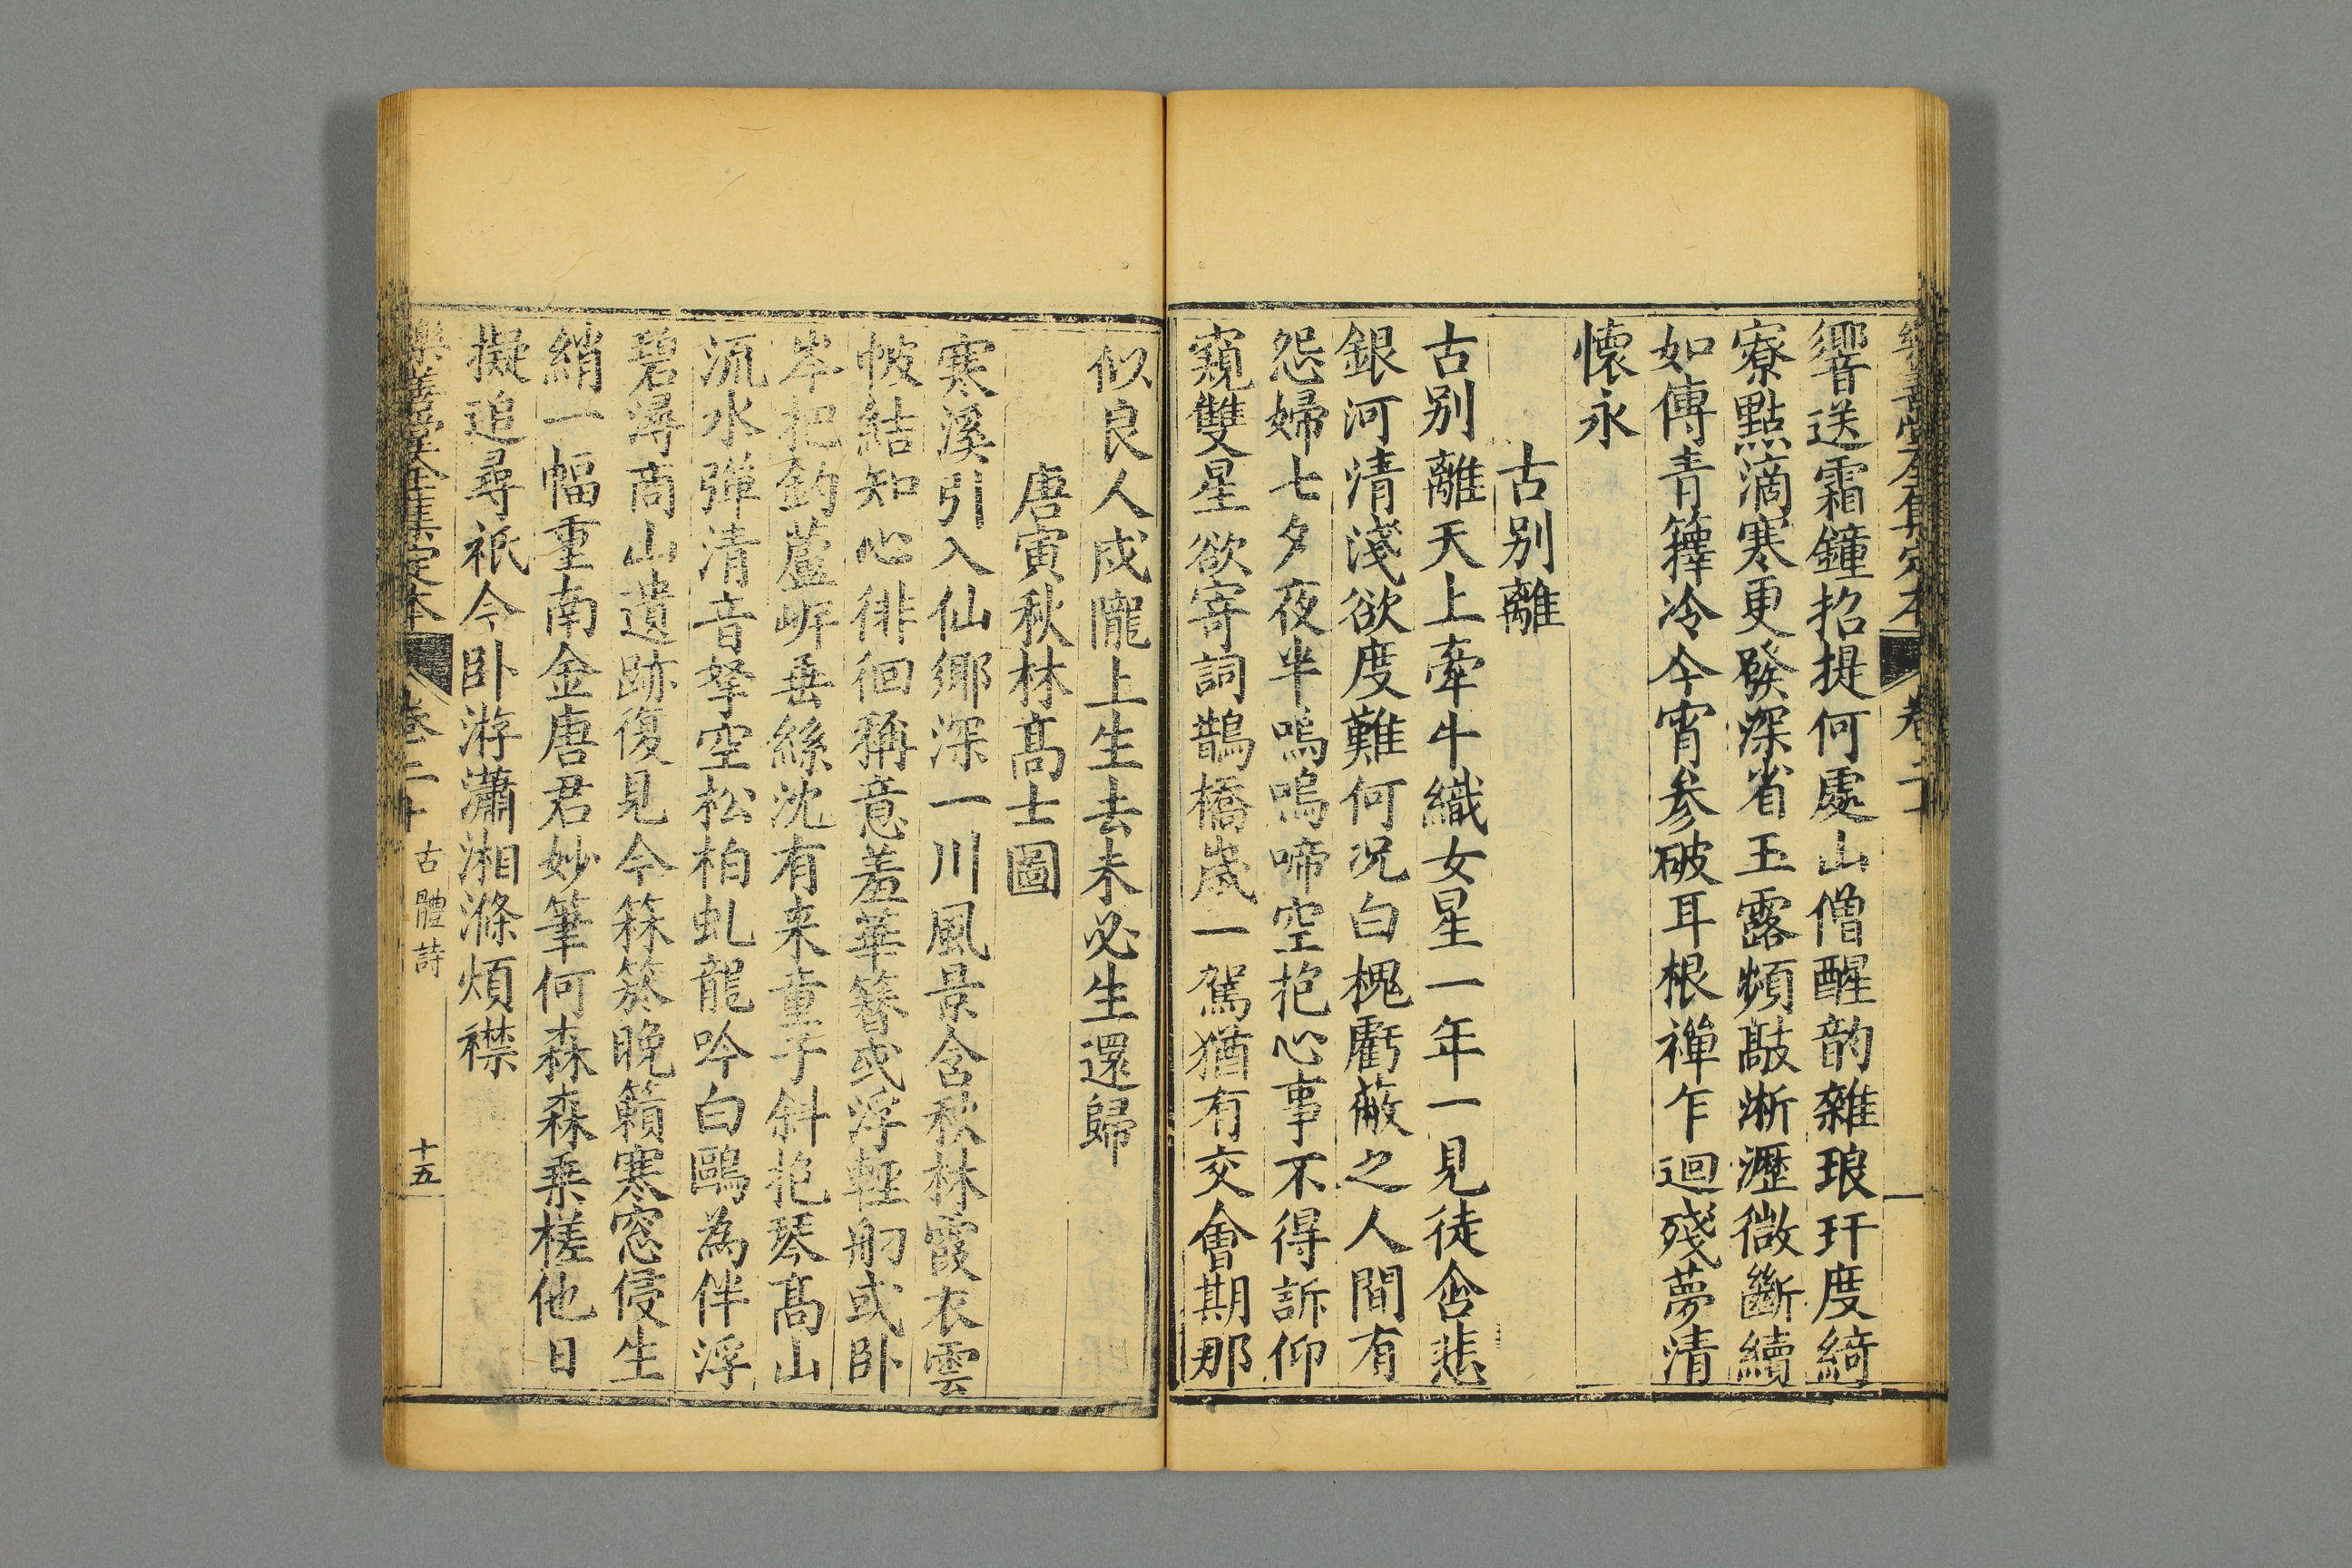 樂善堂全集定本 卷二十
響送霜鐘招提何處山僧醒韵雜琅玕度綺
寮點滴寒更發深省玉露頻敲淅瀝微斷續
如傳青籜冷今宵参破耳根禪乍迴殘夢清
懷永
古别離
古别離天上牽牛織女星一年一見徒含悲
銀河清淺欲度難何况白榥虧蔽之人間有
怨婦七夕夜半嗚嗚啼空抱心事不得訴仰
窺雙星欲寄詞鵲橋歲一駕猶有交會期那
似良人戍隴上生去未必生還歸
唐寅秋林髙士圖
寒溪引入仙鄉深一川風景含秋林霞衣雲
帔結知心徘徊稱意羞華簪或浮輕舠或卧
岑把釣蘆㟁垂絲沈有来童子斜抱琴髙山
流水彈清音拏空松柏虬龍吟白鷗為伴浮
碧潯商山遺跡復見今箖箊晚籟寒窓侵生
綃一幅重南金唐君妙筆何森森乘槎他日
擬追尋祇今卧游瀟湘滌煩襟
樂善堂全集定本 卷二十 古體詩 十五